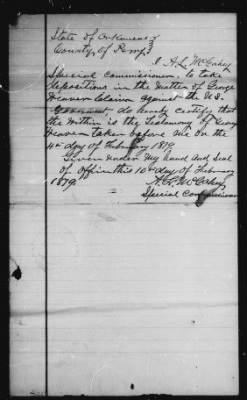 State of Arkansas
County of Perry
I A. L. McCohey
Special commissioner, to take
depositions in the matter of George
Weaver Claim against the U.S.
Government, do hereby certify that
the within is the testimony of Geo
Weaver taken before me on the
4th day of February 1879
Given under my hand and Seal
of Office this 10th day of February
1879
Special Commissioner